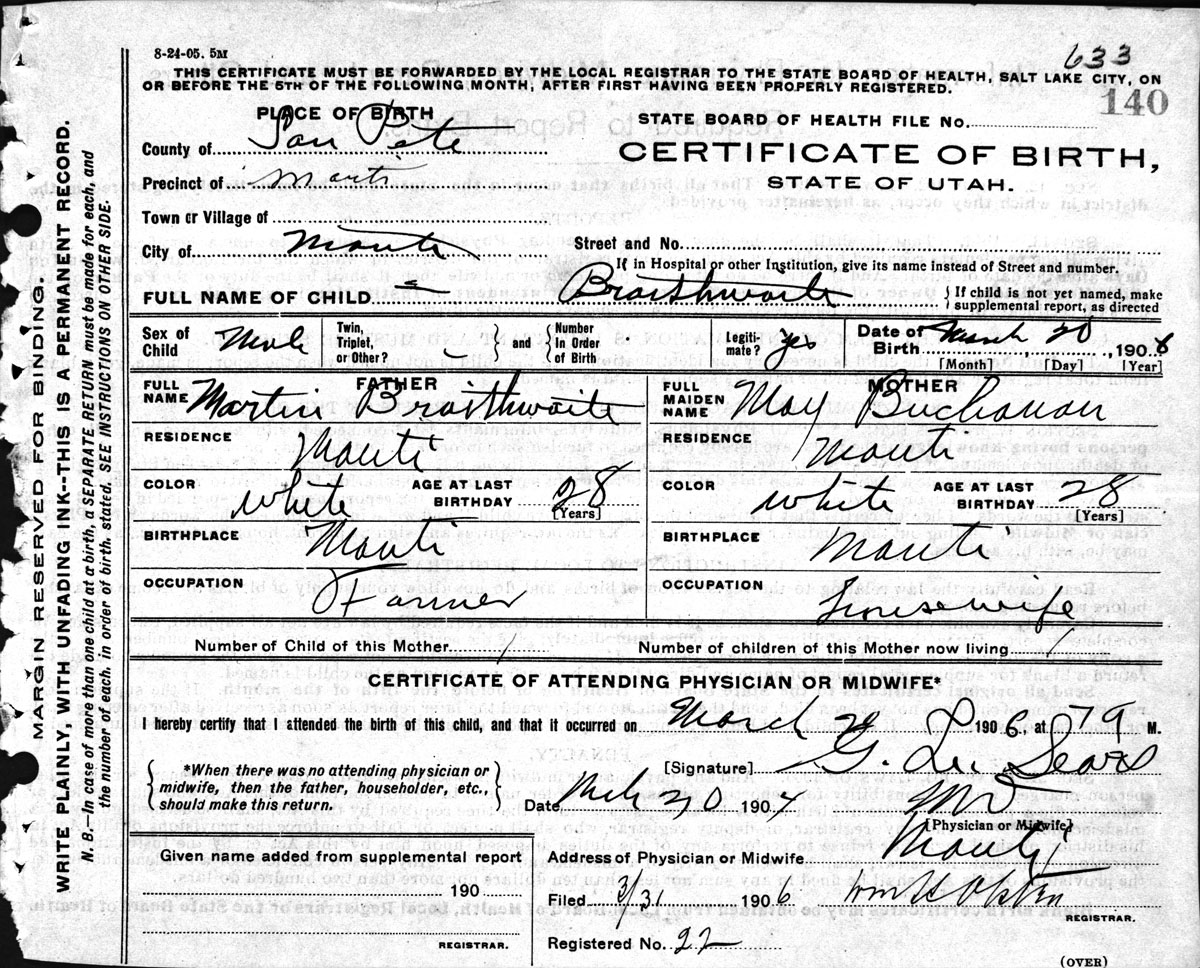 8-24-05. 5M
633
THIS CERTIFICATE MUST BE FORWARDED BY THE LOCAL REGISTRAR TO THE STATE BOARD OF HEALTH, SALT LAKE CITY, ON
OR BEFORE THE 5TH OF THE FOLLOWING MONTH, AFTER FIRST HAVING BEEN PROPERLY REGISTERED.
140
PLACE OF BIRTH
STATE BOARD OF HEALTH FILE No.
County of San Pete
CERTIFICATE OF BIRTH,
Precinct of Manti
STATE OF UTAH.
Town or Village of
City of Manti
Street and No.
If in Hospital or other Institution, give its name instead of Street and number.
FULL NAME OF CHILD — Braithwaite
{ If child is not yet named, make
supplemental report, as directed
Sex of Child Male
Twin, Triplet, or Other? –
} and {
Number In Order of Birth
Legiti- mate? yes
Date of Birth March 20, 1906
[Month] [Day] [Year]
FATHER
FULL NAME Martin Braithwaite
MOTHER
FULL MAIDEN NAME May Buchanan
RESIDENCE Manti
RESIDENCE Manti
COLOR White AGE AT LAST BIRTHDAY 28 [Years]
COLOR White AGE AT LAST BIRTHDAY 28 [Years]
BIRTHPLACE Manti
BIRTHPLACE Manti
OCCUPATION Farmer
OCCUPATION Housewife
Number of Child of this Mother 1
Number of children of this Mother now living 1
CERTIFICATE OF ATTENDING PHYSICIAN OR MIDWIFE*
I hereby certify that I attended the birth of this child, and that it occurred on March 20 1906, at M.
*When there was no attending physician or
midwife, then the father, householder, etc.,
should make this return.
[Signature] G. Sears
Date Mch 30 190
MD
[Physician or Midwife]
Given name added from supplemental report
Address of Physician or Midwife Manti
190
Filed 3/31 1906
REGISTRAR.
REGISTRAR.
Registered No. 22
(OVER)
MARGIN RESERVED FOR BINDING.
WRITE PLAINLY, WITH UNFADING INK--THIS IS A PERMANENT RECORD.
N. B.—In case of more than one child at a birth, a SEPARATE RETURN must be made for each, and
the number of each, in order of birth, stated. SEE INSTRUCTIONS ON OTHER SIDE.